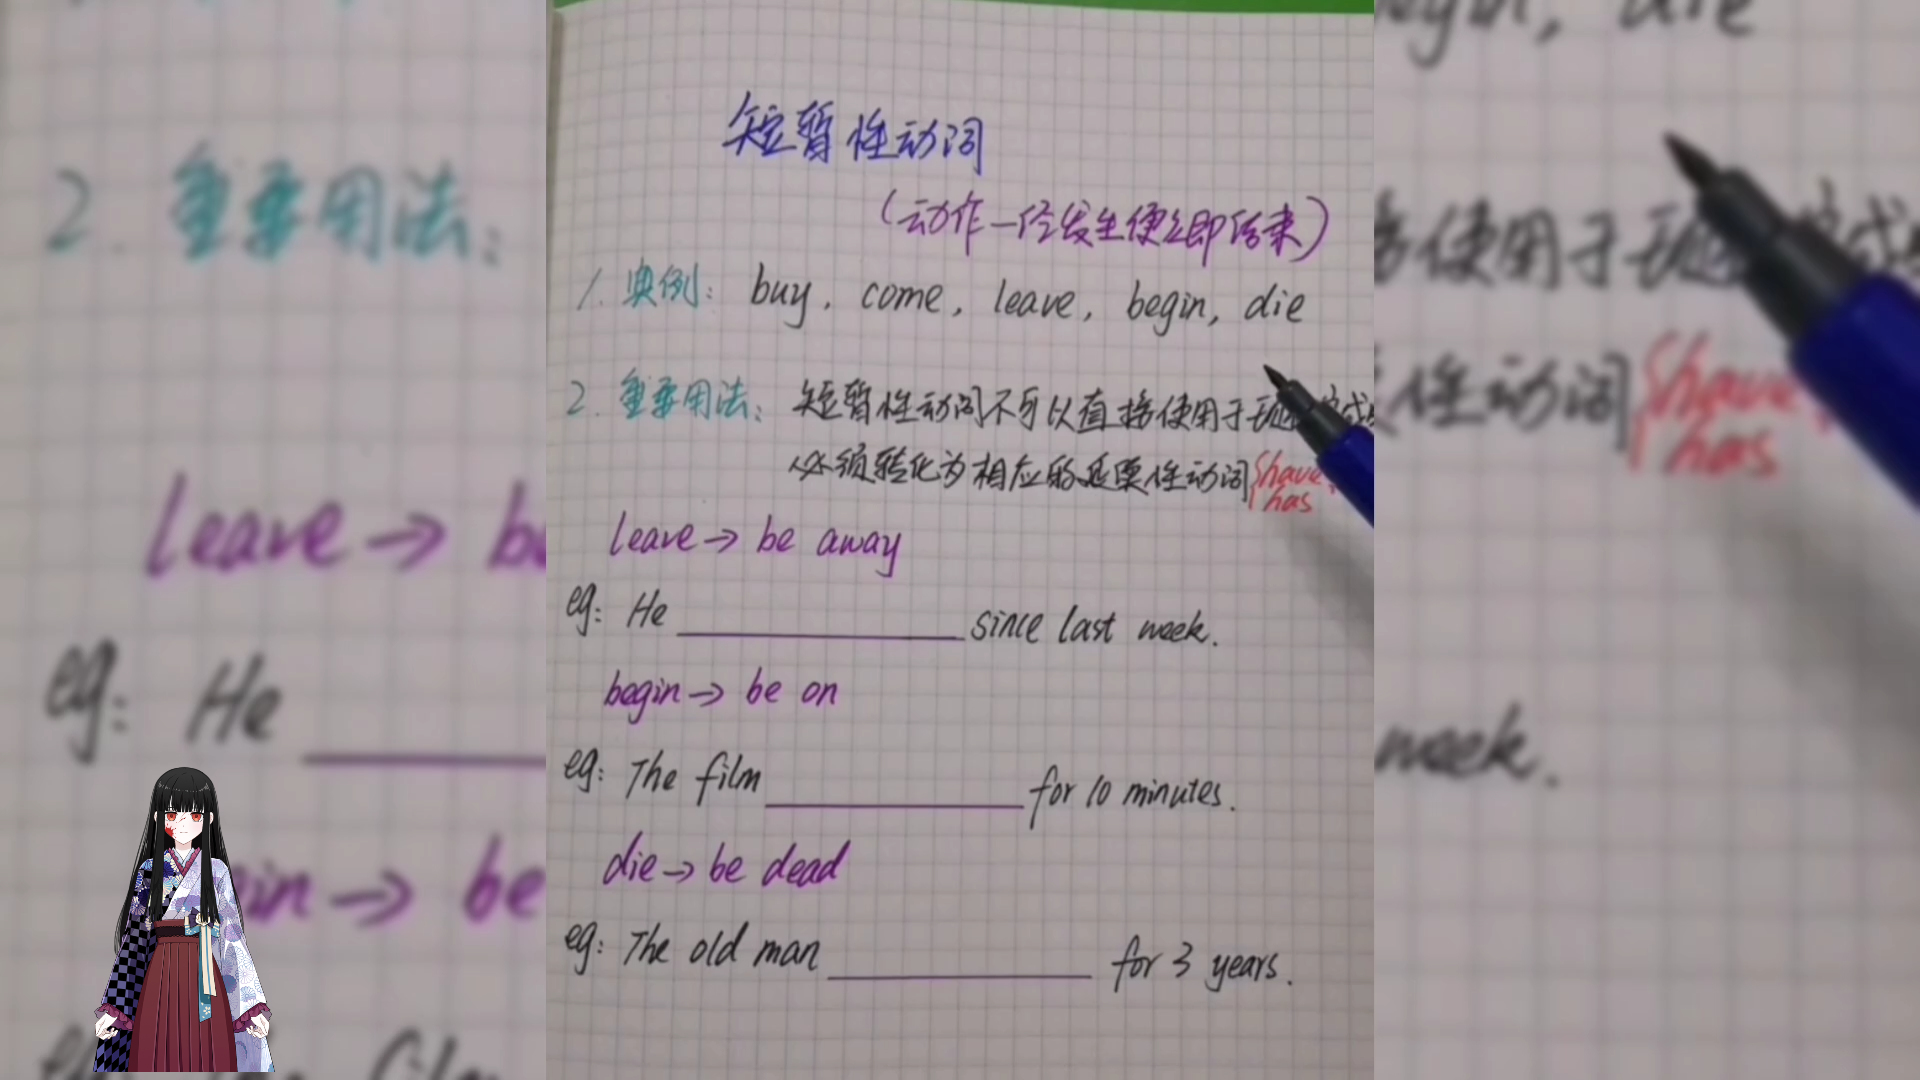 短暂性动词
(动作一经发生便立即结束)
1. 典例: buy, come, leave, begin, die
2. 重要用法: 短暂性动词不可以直接使用于现在完成
必须转化为相应的延续性动词{have
has
leave→ be away
eg: He ______ since last week.
begin→ be on
eg: The film ______ for 10 minutes.
die→ be dead
eg: The old man ______ for 3 years.